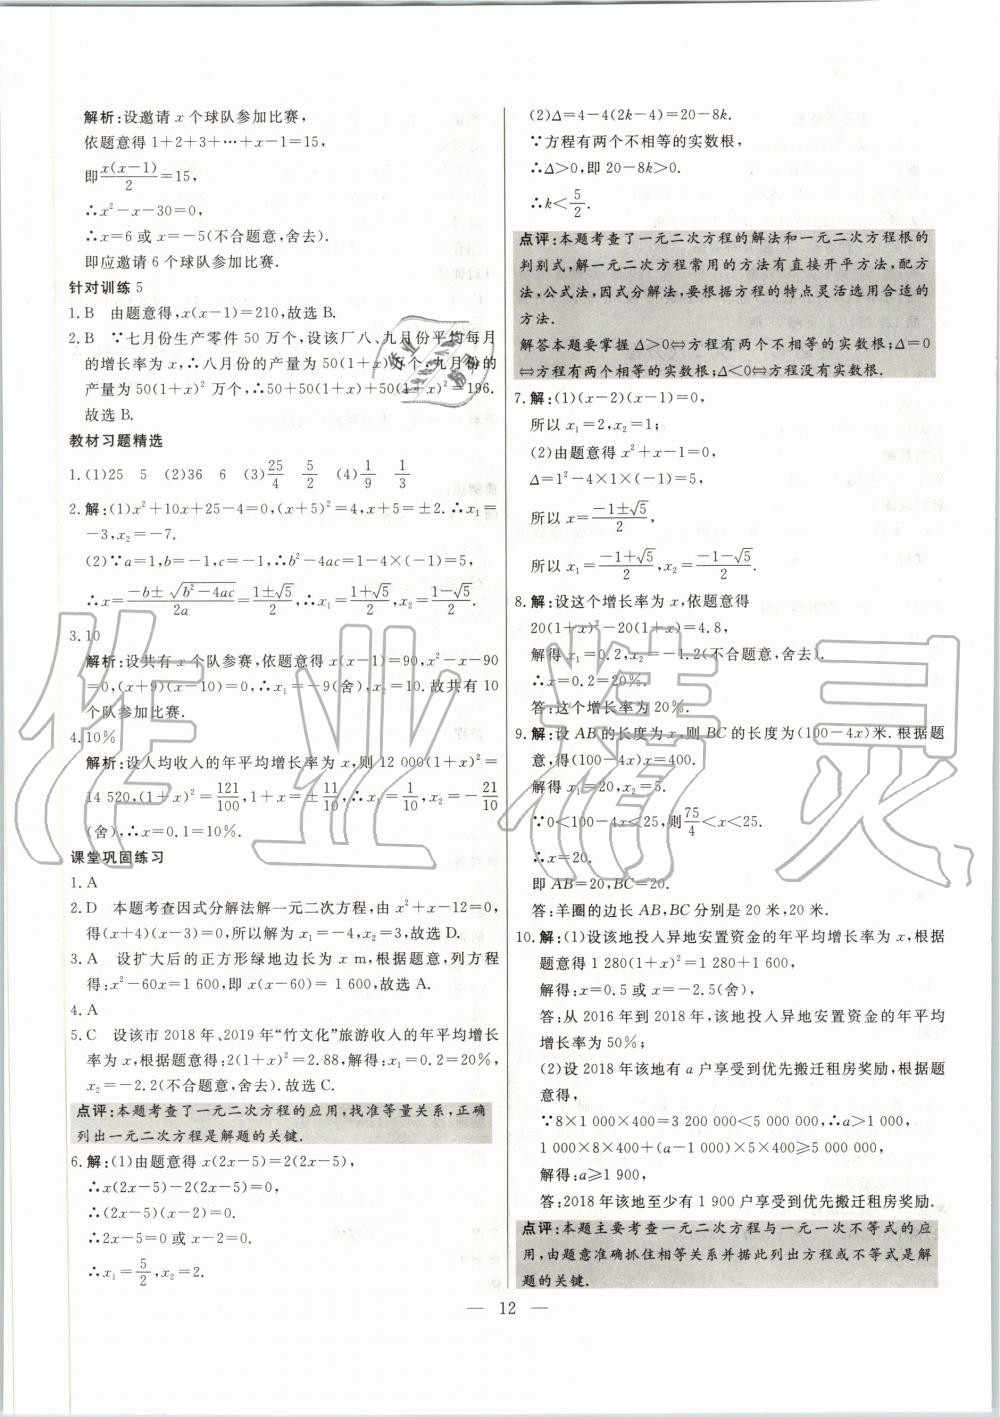 解析:设邀请 x 个球队参加比赛,
依题意得 1+2+3+…+x-1=15,
即x(x-1)/2=15,
∴x²-x-30=0,
∴x=6 或 x=-5(不合题意,舍去).
即应邀请 6 个球队参加比赛.
针对训练 5
1. B 由题意得,x(x-1)=210,故选 B.
2. B ∵七月份生产零件 50 万个,设该厂八、九月份平均每月
的增长率为 x,∴八月份的产量为 50(1+x)万个,九月份的
产量为 50(1+x)² 万个,∴50+50(1+x)+50(1+x)²=196.
故选 B.
教材习题精选
1. (1)25 5 (2)36 6 (3)25/4 5/2 (4)1/9 1/3
2. 解:(1)x²+10x+25-4=0,(x+5)²=4,x+5=±2.∴x₁=
-3,x₂=-7.
(2)∵a=1,b=-1,c=-1,∴b²-4ac=1-4×(-1)=5,
∴x=(-b±√(b²-4ac))/2a=(1±√5)/2,∴x₁=(1+√5)/2,x₂=(1-√5)/2.
3. 10
解析:设共有 x 个队参赛,依题意得 x(x-1)=90,x²-x-90
=0,(x+9)(x-10)=0,∴x₁=-9(舍),x₂=10.故共有 10
个队参加比赛.
4. 10%
解析:设人均收入的年平均增长率为 x,则 12 000(1+x)²=
14 520,(1+x)²=121/100,1+x=±11/10,x₁=1/10,x₂=-21/10
(舍),∴x=0.1=10%.
课堂巩固练习
1. A
2. D 本题考查因式分解法解一元二次方程,由 x²+x-12=0,
得(x+4)(x-3)=0,所以解为 x₁=-4,x₂=3,故选 D.
3. A 设扩大后的正方形绿地边长为 x m,根据题意,列方程
得:x²-60x=1 600,即 x(x-60)=1 600,故选 A.
4. A
5. C 设该市 2018 年、2019 年“竹文化”旅游收入的年平均增长
率为 x,根据题意得:2(1+x)²=2.88,解得:x₁=0.2=20%,
x₂=-2.2(不合题意,舍去).故选 C.
点评:本题考查了一元二次方程的应用,找准等量关系,正确
列出一元二次方程是解题的关键.
6. 解:(1)由题意得 x(2x-5)=2(2x-5),
∴x(2x-5)-2(2x-5)=0,
∴(2x-5)(x-2)=0.
∴2x-5=0 或 x-2=0
∴x₁=5/2,x₂=2.
(2)Δ=4-4(2k-4)=20-8k.
∵方程有两个不相等的实数根,
∴Δ>0,即 20-8k>0.
∴k<5/2.
点评:本题考查了一元二次方程的解法和一元二次方程根的
判别式,解一元二次方程常用的方法有直接开平方法,配方
法,公式法,因式分解法,要根据方程的特点灵活选用合适的
方法.
解答本题要掌握 Δ>0⇔方程有两个不相等的实数根;Δ=0
⇔方程有两个相等的实数根;Δ<0⇔方程没有实数根.
7. 解:(1)(x-2)(x-1)=0,
所以 x₁=2,x₂=1;
(2)由题意得 x²+x-1=0,
Δ=1²-4×1×(-1)=5,
所以 x=(-1±√5)/2,
所以 x₁=(-1+√5)/2,x₂=(-1-√5)/2.
8. 解:设这个增长率为 x,依题意得
20(1+x)²-20(1+x)=4.8,
解得 x₁=0.2,x₂=-1.2(不合题意,舍去).
∴x=0.2=20%.
答:这个增长率为 20%.
9. 解:设 AB 的长度为 x,则 BC 的长度为(100-4x)米.根据题
意,得(100-4x)x=400.
解得 x₁=20,x₂=5.
∵0<100-4x<25,则75/4<x<25.
∴x=20.
即 AB=20,BC=20.
答:羊圈的边长 AB,BC 分别是 20 米,20 米.
10. 解:(1)设该地投入异地安置资金的年平均增长率为 x,根据
题意得 1 280(1+x)²=1 280+1 600,
解得:x=0.5 或 x=-2.5(舍),
答:从 2016 年到 2018 年,该地投入异地安置资金的年平均
增长率为 50%;
(2)设 2018 年该地有 a 户享受到优先搬迁租房奖励,根据题
意得,
∵8×1 000×400=3 200 000<5 000 000,∴a>1 000,
1 000×8×400+(a-1 000)×5×400≥5 000 000,
解得:a≥1 900,
答:2018 年该地至少有 1 900 户享受到优先搬迁租房奖励.
点评:本题主要考查一元二次方程与一元一次不等式的应
用,由题意准确抓住相等关系并据此列出方程或不等式是解
题的关键.
— 12 —
作业精灵